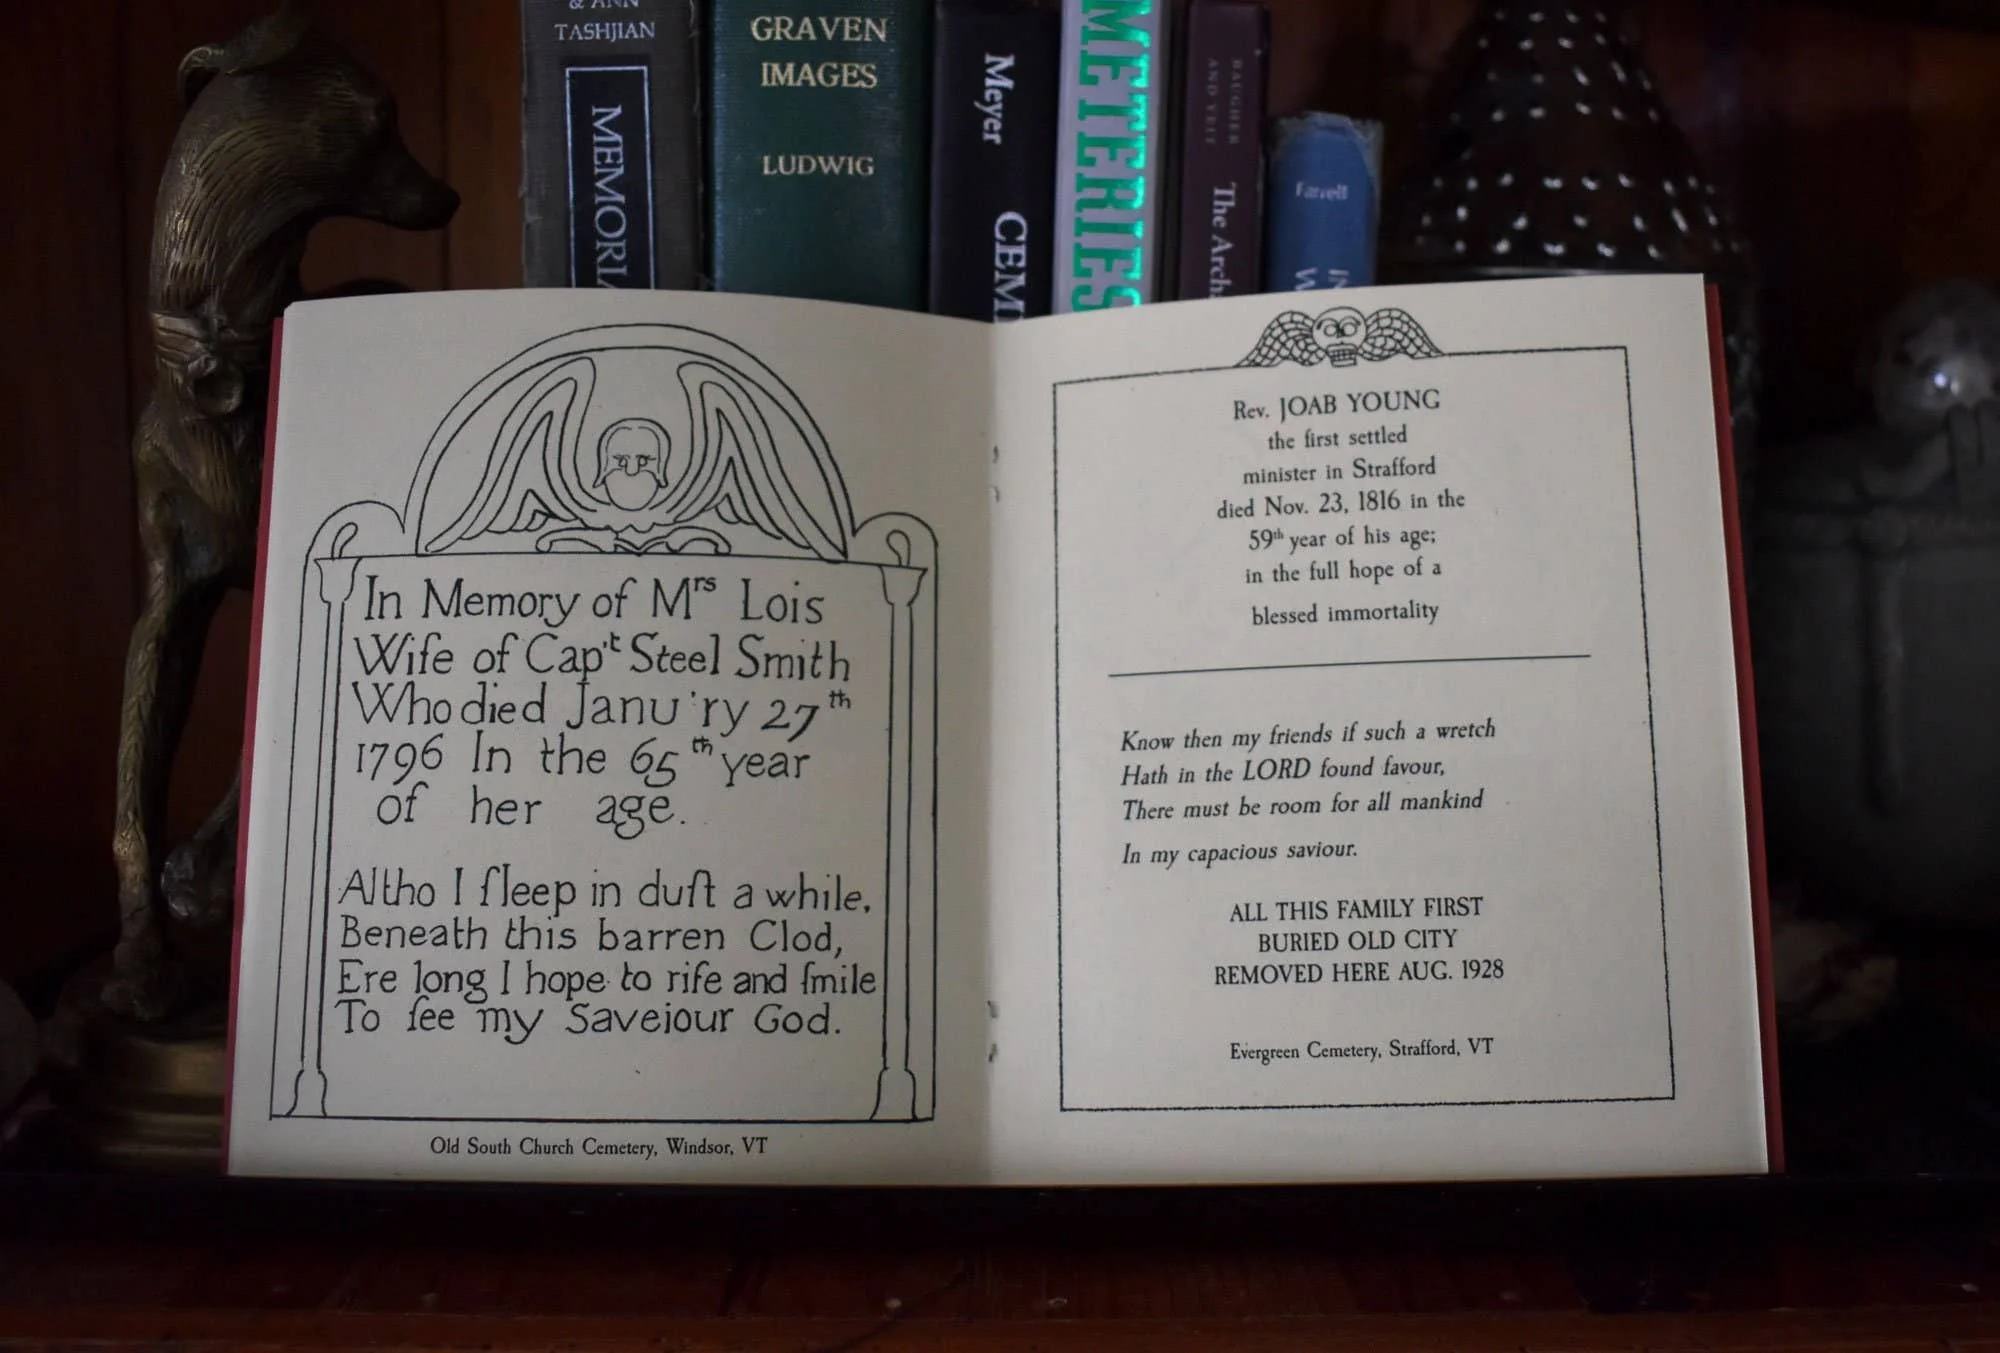 & ANN
TASHJIAN
MEMORIA
GRAVEN
IMAGES
LUDWIG
Meyer
CEM
METERIES
BAUGHER
AND VEIT
The Archa
Farrell
IN
W
In Memory of Mrs Lois
Wife of Cap't Steel Smith
Who died Janu'ry 27th
1796 In the 65th year
of her age.
Altho I ſleep in duſt a while,
Beneath this barren Clod,
Ere long I hope to riſe and ſmile
To ſee my Saveiour God.
Old South Church Cemetery, Windsor, VT
Rev. JOAB YOUNG
the first settled
minister in Strafford
died Nov. 23, 1816 in the
59th year of his age;
in the full hope of a
blessed immortality
Know then my friends if such a wretch
Hath in the LORD found favour,
There must be room for all mankind
In my capacious saviour.
ALL THIS FAMILY FIRST
BURIED OLD CITY
REMOVED HERE AUG. 1928
Evergreen Cemetery, Strafford, VT